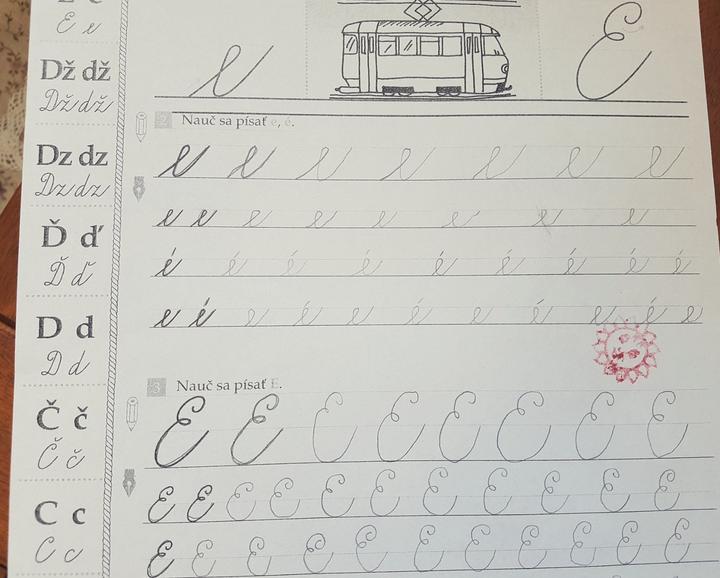 E e
Dž dž
Dž dž
Dz dz
Dz dz
Ď ď
Ď ď
D d
D d
Č č
Č č
C c
C c
e E
2 Nauč sa písať e, é.
e e e e e e e
e e e e e e e e
é é é é é é é é é
e é e é e é e é e é e
3 Nauč sa písať E.
E E E E E E E E
E E E E E E E E E E E
E E E E E E E E E E E